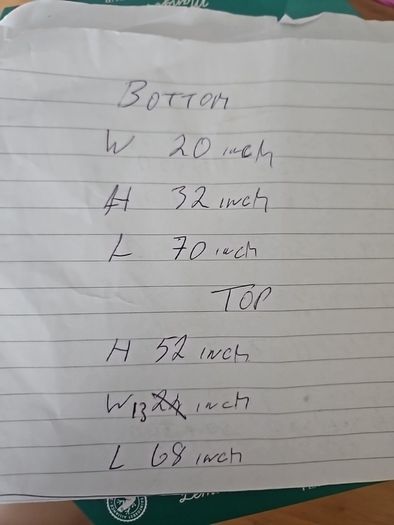 BOTTOM
W 20 inch
H 32 inch
L 70 inch
TOP
H 52 inch
W 13 inch
L 68 inch